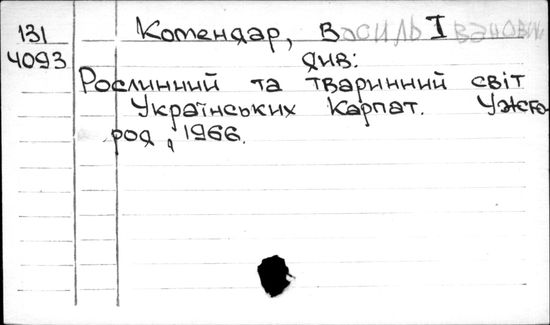 131
4093
Комендар, Василь Іванович
див:
Рослинний та тваринний світ
Українських Карпат. Ужго-
род, 1966.